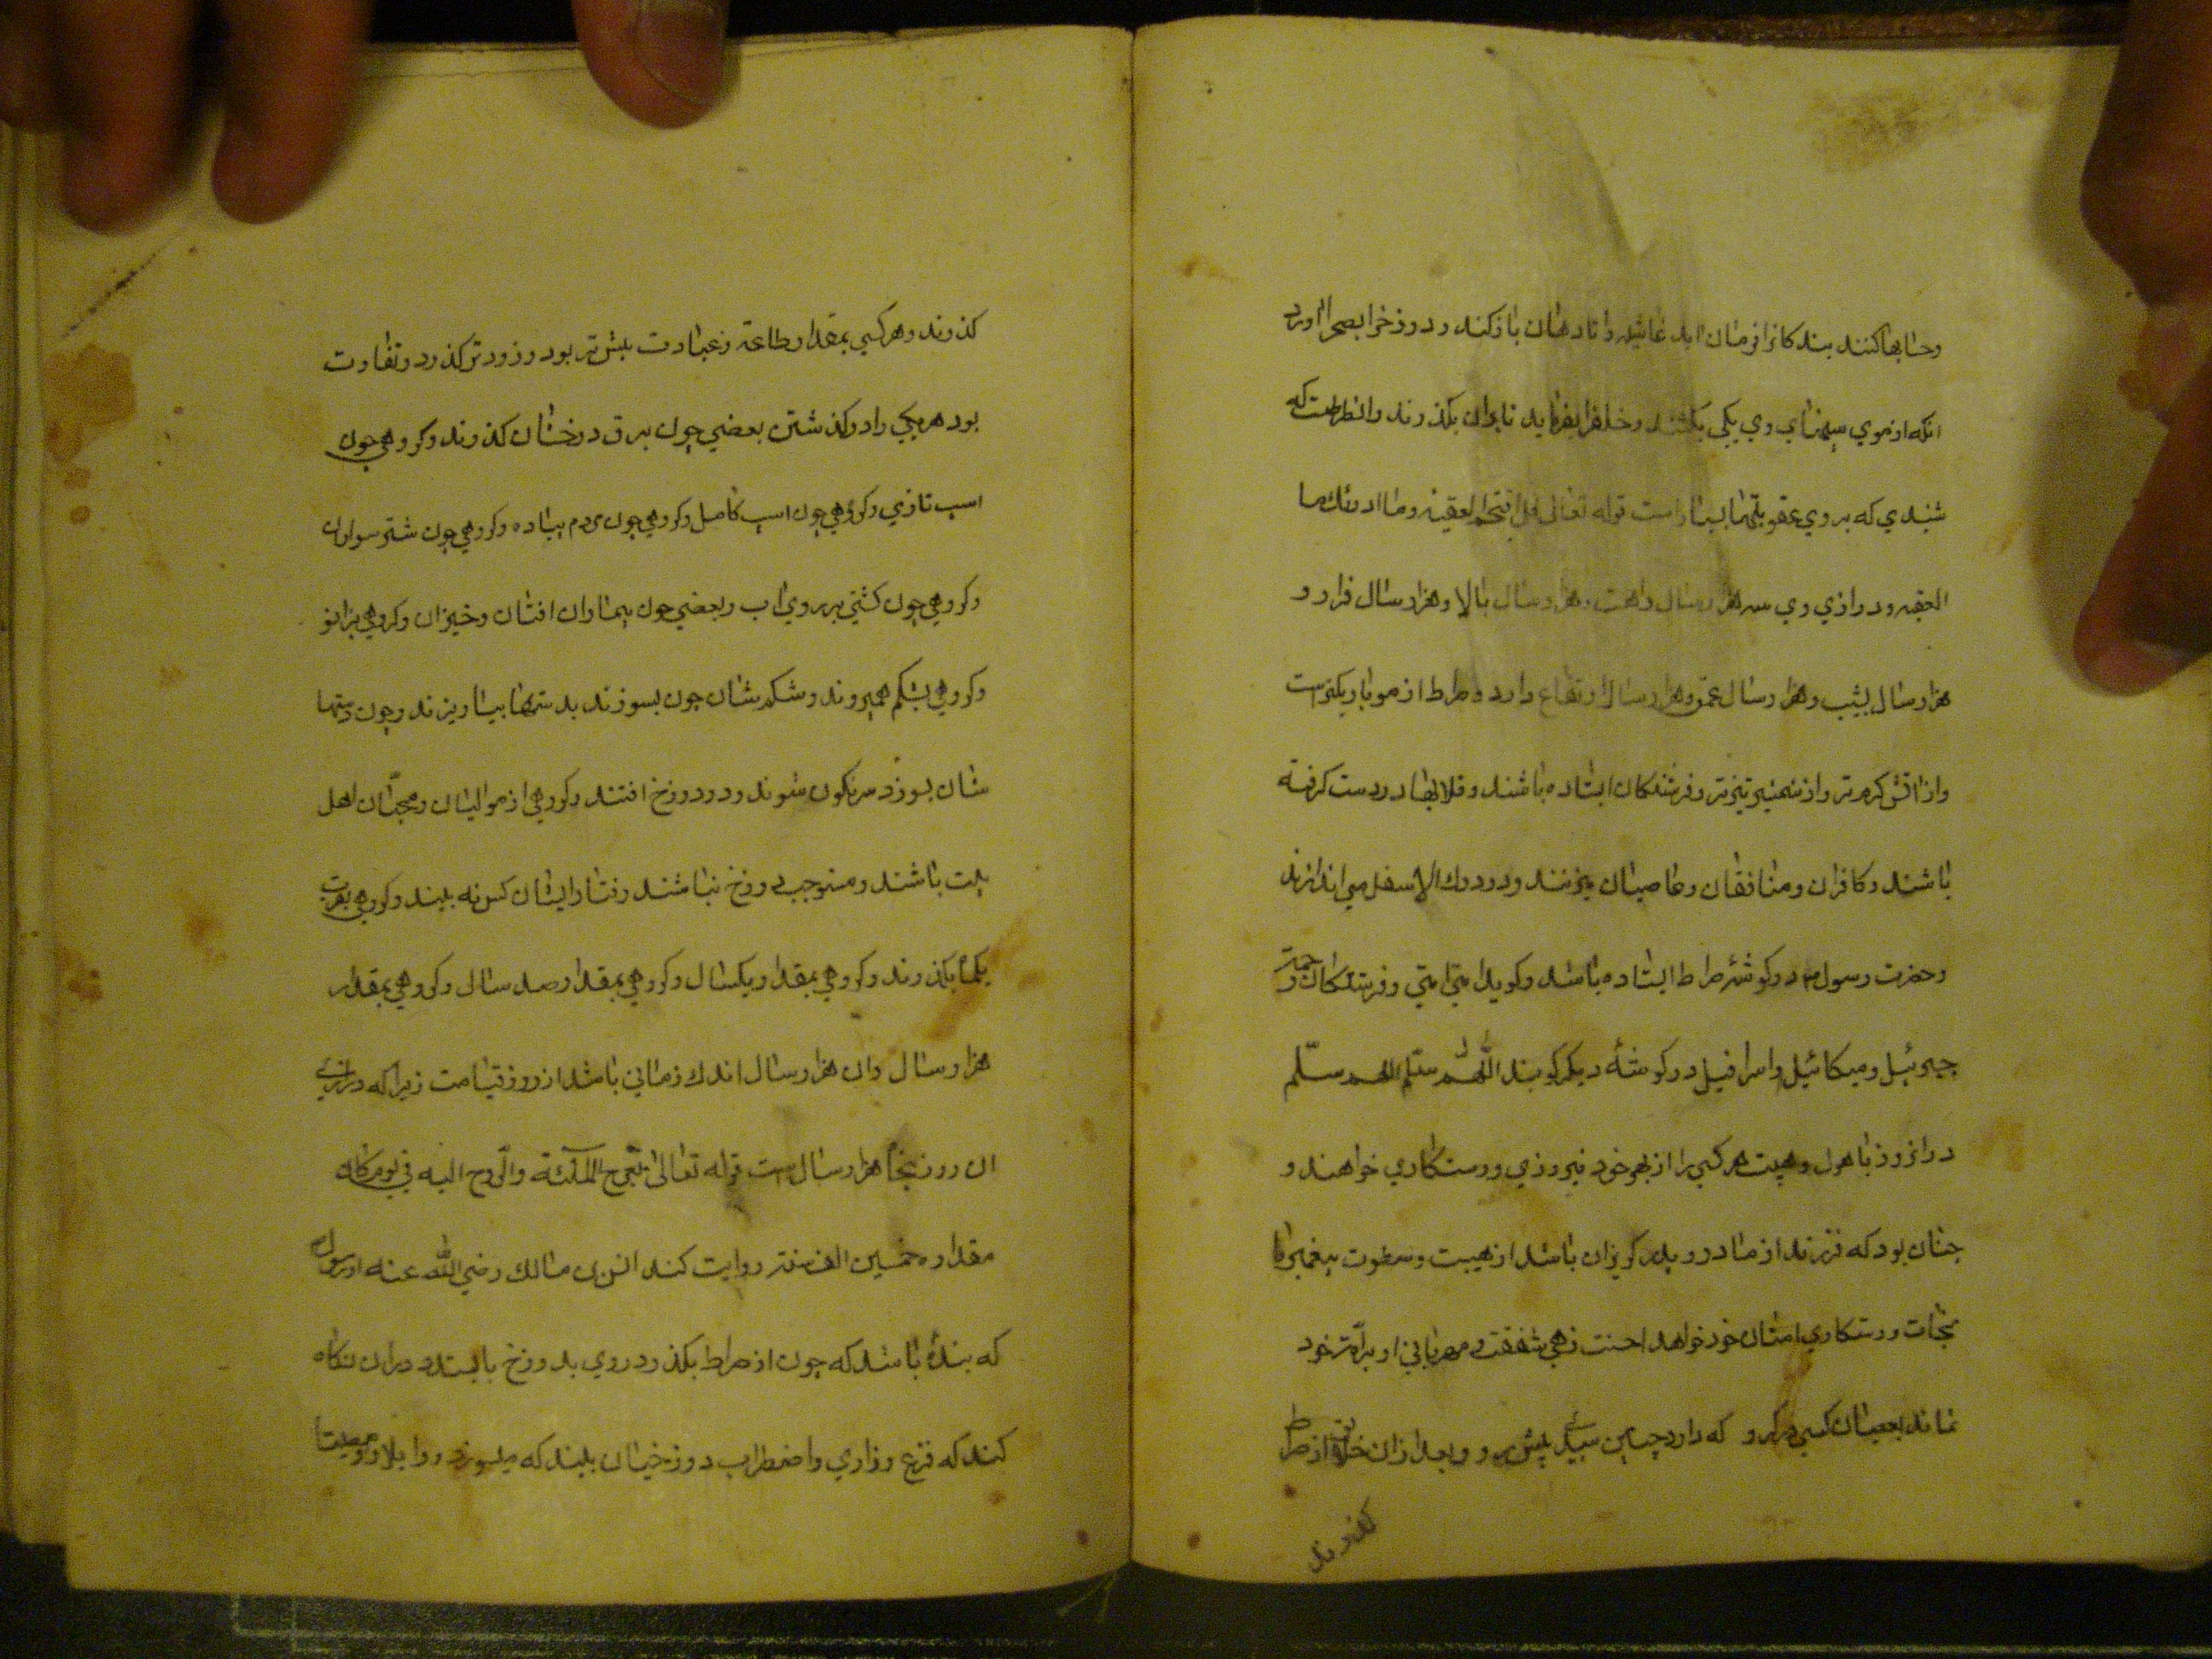 وحسابها کنند بندکانرا فرمان اید غاشیه وا تا دهان باز کند و دوزخرا بصحرا اورد
انکه از موی سیمنای وی یکی بکشند و خلقرا بفرماید تا بران بکذرند و انطراطست که
شنیدی که بروی عقوبتهّا بسیار است قوله تعالی فلا اقتحم العقبه وما ادرئك ما
العقبه و درازی وی سه هزار سال راهت وهزار سال بالا وهزار سال فرازو
هزار سال بشیب وهزار سال عمق وهزار سال ارتفاع دارد و صراط از مو باریکترست
واز اتش کرم‌تر و از شمشیر تیزتر و فرشتکان ایستاده باشند و قلابها در دست کرفته
باشند و کافران و منافقان و عاصیان میزنند و در درك الاسفل می اندازند
و حضرت رسول م در کوشهٔ صراط ایستاده باشد و کوید امتی امتی و فرشتکان رحمت
جبرئیل و میکائیل و اسرافیل در کوشهٔ دیکر کویند اللّهم سلّم اللهم سلّم
درانروز باهول و هیبت هر کسی را از بهر خود فیروزی و رستکاری خواهند و
جنان بود که فرزند از مادر و پدر کریزان باشد از هیبت و سطوت پیغمبر ما
نجات و رستکاری امتان خود خواهد احسنت زهی شفقت و مهربانی او برامّت خود
نماند بعصیان کسی در کرو که دارد چنین سیدی پیش رو و بعد ازان خلایق از صراط
کذرند
کذرند و هر کسی بمقدار طاعة و عبادت بیش‌تر بود و زودتر کذرد و تفاوت
بود هر یکی را در کذشتن بعضی چون برق درخشان کذرند و کروهی چون
اسب تازی و کروهی چون اسب کامل و کروهی چون مردم پیاده و کروهی چون شتر سواران
و کروهی چون کشتی بر روی اب و بعضی چون بیماران افتان و خیزان و کروهی بزانو
و کروهی بشکم همیروند و شکمشان چون بسوزند بدستها بیاویزند و چون دستها
شان بسوزد سرنکون شوند و در دوزخ افتند و کروهی از موالیان و محبّان اهل
بیت باشند و مستوجب دوزخ نباشند رفتار ایشان کس نه بیند و کروهی بقرب
یکماه بکذرند و کروهی بمقدار یکسال و کروهی بمقدار صد سال و کروهی بمقدار
هزار سال وان هزار سال اندك زمانی باشد از روز قیامت زیرا که درازی
ان روز پنجاه هزار سال است قوله تعالی تعرج الملٓئکة والرّوح الیه فی یوم کان
مقداره خمسین الف سنة روایت کند انس بن مالك رضی اللّه عنه از رسول م
که بندهٔ باشد که چون از صراط بکذرد روی بدوزخ بایستد دران نکاه
کند که فزع و زاری و اضطراب دوزخیان بیند که میسوزد و وا ویلا و وا مصیبتا